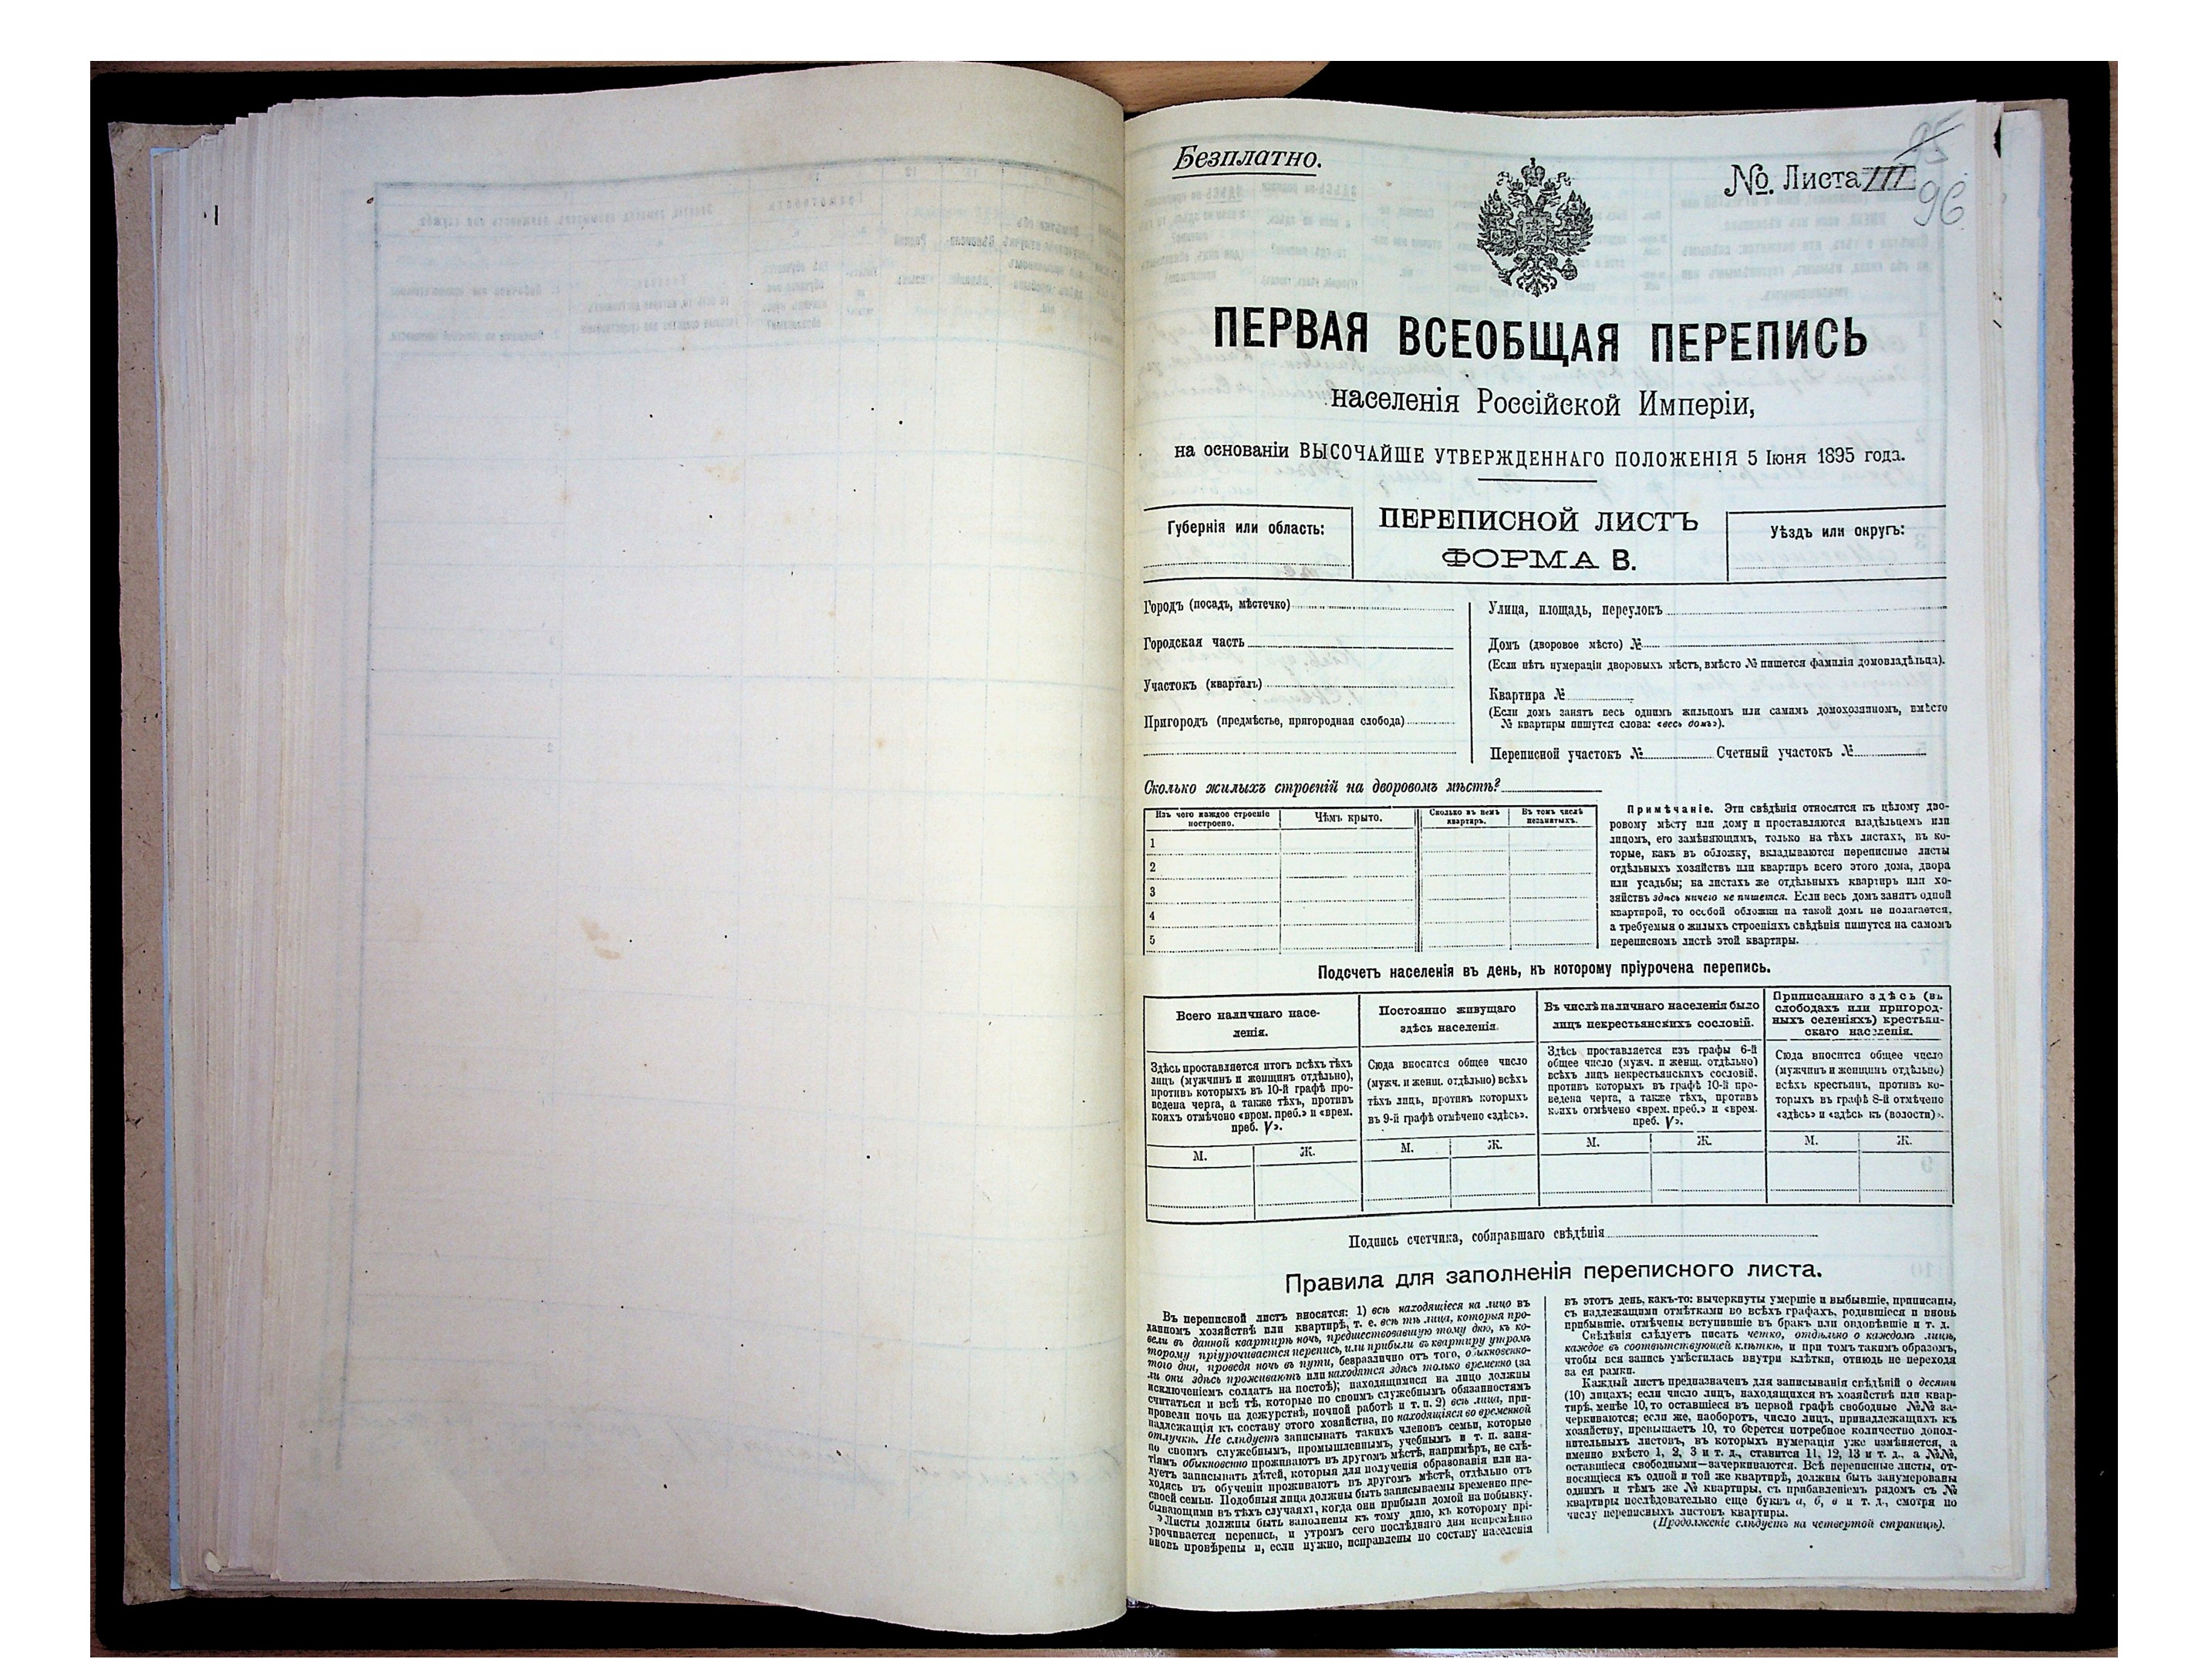 Безплатно.
№. Листа III
95
96
ПЕРВАЯ ВСЕОБЩАЯ ПЕРЕПИСЬ
населенія Россійской Имперіи,
на основаніи ВЫСОЧАЙШЕ УТВЕРЖДЕННАГО ПОЛОЖЕНІЯ 5 Іюня 1895 года.
Губернія или область:
ПЕРЕПИСНОЙ ЛИСТЪ
ФОРМА В.
Уѣздъ или округъ:
Городъ (посадъ, мѣстечко)
Городская часть
Участокъ (кварталъ)
Пригородъ (предмѣстье, пригородная слобода)
Улица, площадь, переулокъ
Домъ (дворовое мѣсто) №
(Если нѣтъ нумераціи дворовыхъ мѣстъ, вмѣсто № пишется фамилія домовладѣльца).
Квартира №
(Если домъ занятъ весь однимъ жильцомъ или самимъ домохозяиномъ, вмѣсто
№ квартиры пишутся слова: «весь домъ»).
Переписной участокъ № Счетный участокъ №
Сколько жилыхъ строеній на дворовомъ мѣстѣ?
Изъ чего каждое строеніе
построено.
Чѣмъ крыто.
Сколько въ немъ
квартиръ.
Въ томъ числѣ
незанятыхъ.
1
2
3
4
5
Примѣчаніе. Эти свѣдѣнія относятся къ цѣлому дво-
ровому мѣсту или дому и проставляются владѣльцемъ или
лицомъ, его замѣняющимъ, только на тѣхъ листахъ, въ ко-
торые, какъ въ обложку, вкладываются переписные листы
отдѣльныхъ хозяйствъ или квартиръ всего этого дома, двора
или усадьбы; на листахъ же отдѣльныхъ квартиръ или хо-
зяйствъ здѣсь ничего не пишется. Если весь домъ занятъ одной
квартирой, то особой обложки на такой домъ не полагается,
а требуемыя о жилыхъ строеніяхъ свѣдѣнія пишутся на самомъ
переписномъ листѣ этой квартиры.
Подсчетъ населенія въ день, къ которому пріурочена перепись.
Всего наличнаго насе-
ленія.
Здѣсь проставляется итогъ всѣхъ тѣхъ
лицъ (мужчинъ и женщинъ отдѣльно),
противъ которыхъ въ 10-й графѣ про-
ведена черта, а также тѣхъ, противъ
коихъ отмѣчено «врем. преб.» и «врем.
преб. V».
М. Ж.
Постоянно живущаго
здѣсь населенія.
Сюда вносится общее число
(мужч. и женщ. отдѣльно) всѣхъ
тѣхъ лицъ, противъ которыхъ
въ 9-й графѣ отмѣчено «здѣсь».
М. Ж.
Въ числѣ наличнаго населенія было
лицъ некрестьянскихъ сословій.
Здѣсь проставляется изъ графы 6-й
общее число (мужч. и женщ. отдѣльно)
всѣхъ лицъ некрестьянскихъ сословій,
противъ которыхъ въ графѣ 10-й про-
ведена черта, а также тѣхъ, противъ
коихъ отмѣчено «врем. преб.» и «врем.
преб. V».
М. Ж.
Приписаннаго здѣсь (въ
слободахъ или пригород-
ныхъ селеніяхъ) крестьян-
скаго населенія.
Сюда вносится общее число
(мужчинъ и женщинъ отдѣльно)
всѣхъ крестьянъ, противъ ко-
торыхъ въ графѣ 8-й отмѣчено
«здѣсь» и «здѣсь къ (волости)».
М. Ж.
Подпись счетчика, собиравшаго свѣдѣнія
Правила для заполненія переписного листа.
Въ переписной листъ вносятся: 1) всѣ находящіеся на лицо въ
данномъ хозяйствѣ или квартирѣ, т. е. всѣ тѣ лица, которыя про-
вели въ данной квартирѣ ночь, предшествовавшую тому дню, къ ко-
торому пріурочивается перепись, или прибыли въ квартиру утромъ
того дня, проведя ночь въ пути, безразлично отъ того, обыкновенно-
ли они здѣсь проживаютъ или находятся здѣсь только временно (за
исключеніемъ солдатъ на постоѣ); находящимися на лицо должны
считаться и всѣ тѣ, которые по своимъ служебнымъ обязанностямъ
провели ночь на дежурствѣ, ночной работѣ и т. п. 2) всѣ лица, при-
надлежащія къ составу этого хозяйства, но находящіяся во временной
отлучкѣ. Не слѣдуетъ записывать такихъ членовъ семьи, которые
по своимъ служебнымъ, промышленнымъ, учебнымъ и т. п. заня-
тіямъ обыкновенно проживаютъ въ другомъ мѣстѣ, напримѣръ, не слѣ-
дуетъ записывать дѣтей, которыя для полученія образованія или на-
ходясь въ обученіи проживаютъ въ другомъ мѣстѣ, отдѣльно отъ
своей семьи. Подобныя лица должны быть записываемы временно пре-
бывающими въ тѣхъ случаяхъ, когда они прибыли домой на побывку.
Листы должны быть заполнены къ тому дню, къ которому прі-
урочивается перепись, и утромъ сего послѣдняго дня непремѣнно
вновь провѣрены и, если нужно, исправлены по составу населенія
въ этотъ день, какъ-то: вычеркнуты умершіе и выбывшіе, приписаны,
съ надлежащими отмѣтками во всѣхъ графахъ, родившіеся и вновь
прибывшіе, отмѣчены вступившіе въ бракъ или овдовѣвшіе и т. д.
Свѣдѣнія слѣдуетъ писать четко, отдѣльно о каждомъ лицѣ,
каждое въ соотвѣтствующей клѣткѣ, и при томъ такимъ образомъ,
чтобы вся запись умѣстилась внутри клѣтки, отнюдь не переходя
за ея рамки.
Каждый листъ предназначенъ для записыванія свѣдѣній о десяти
(10) лицахъ; если число лицъ, находящихся въ хозяйствѣ или квар-
тирѣ, менѣе 10, то оставшіеся въ первой графѣ свободные №№ за-
черкиваются; если же, наоборотъ, число лицъ, принадлежащихъ къ
хозяйству, превышаетъ 10, то берется потребное количество допол-
нительныхъ листовъ, въ которыхъ нумерація уже измѣняется, а
именно вмѣсто 1, 2, 3 и т. д., ставится 11, 12, 13 и т. д., а №№,
оставшіеся свободными—зачеркиваются. Всѣ переписные листы, от-
носящіеся къ одной и той же квартирѣ, должны быть занумерованы
однимъ и тѣмъ же № квартиры, съ прибавленіемъ рядомъ съ №
квартиры послѣдовательно еще буквъ а, б, в и т. д., смотря по
числу переписныхъ листовъ квартиры.
(Продолженіе слѣдуетъ на четвертой страницѣ).